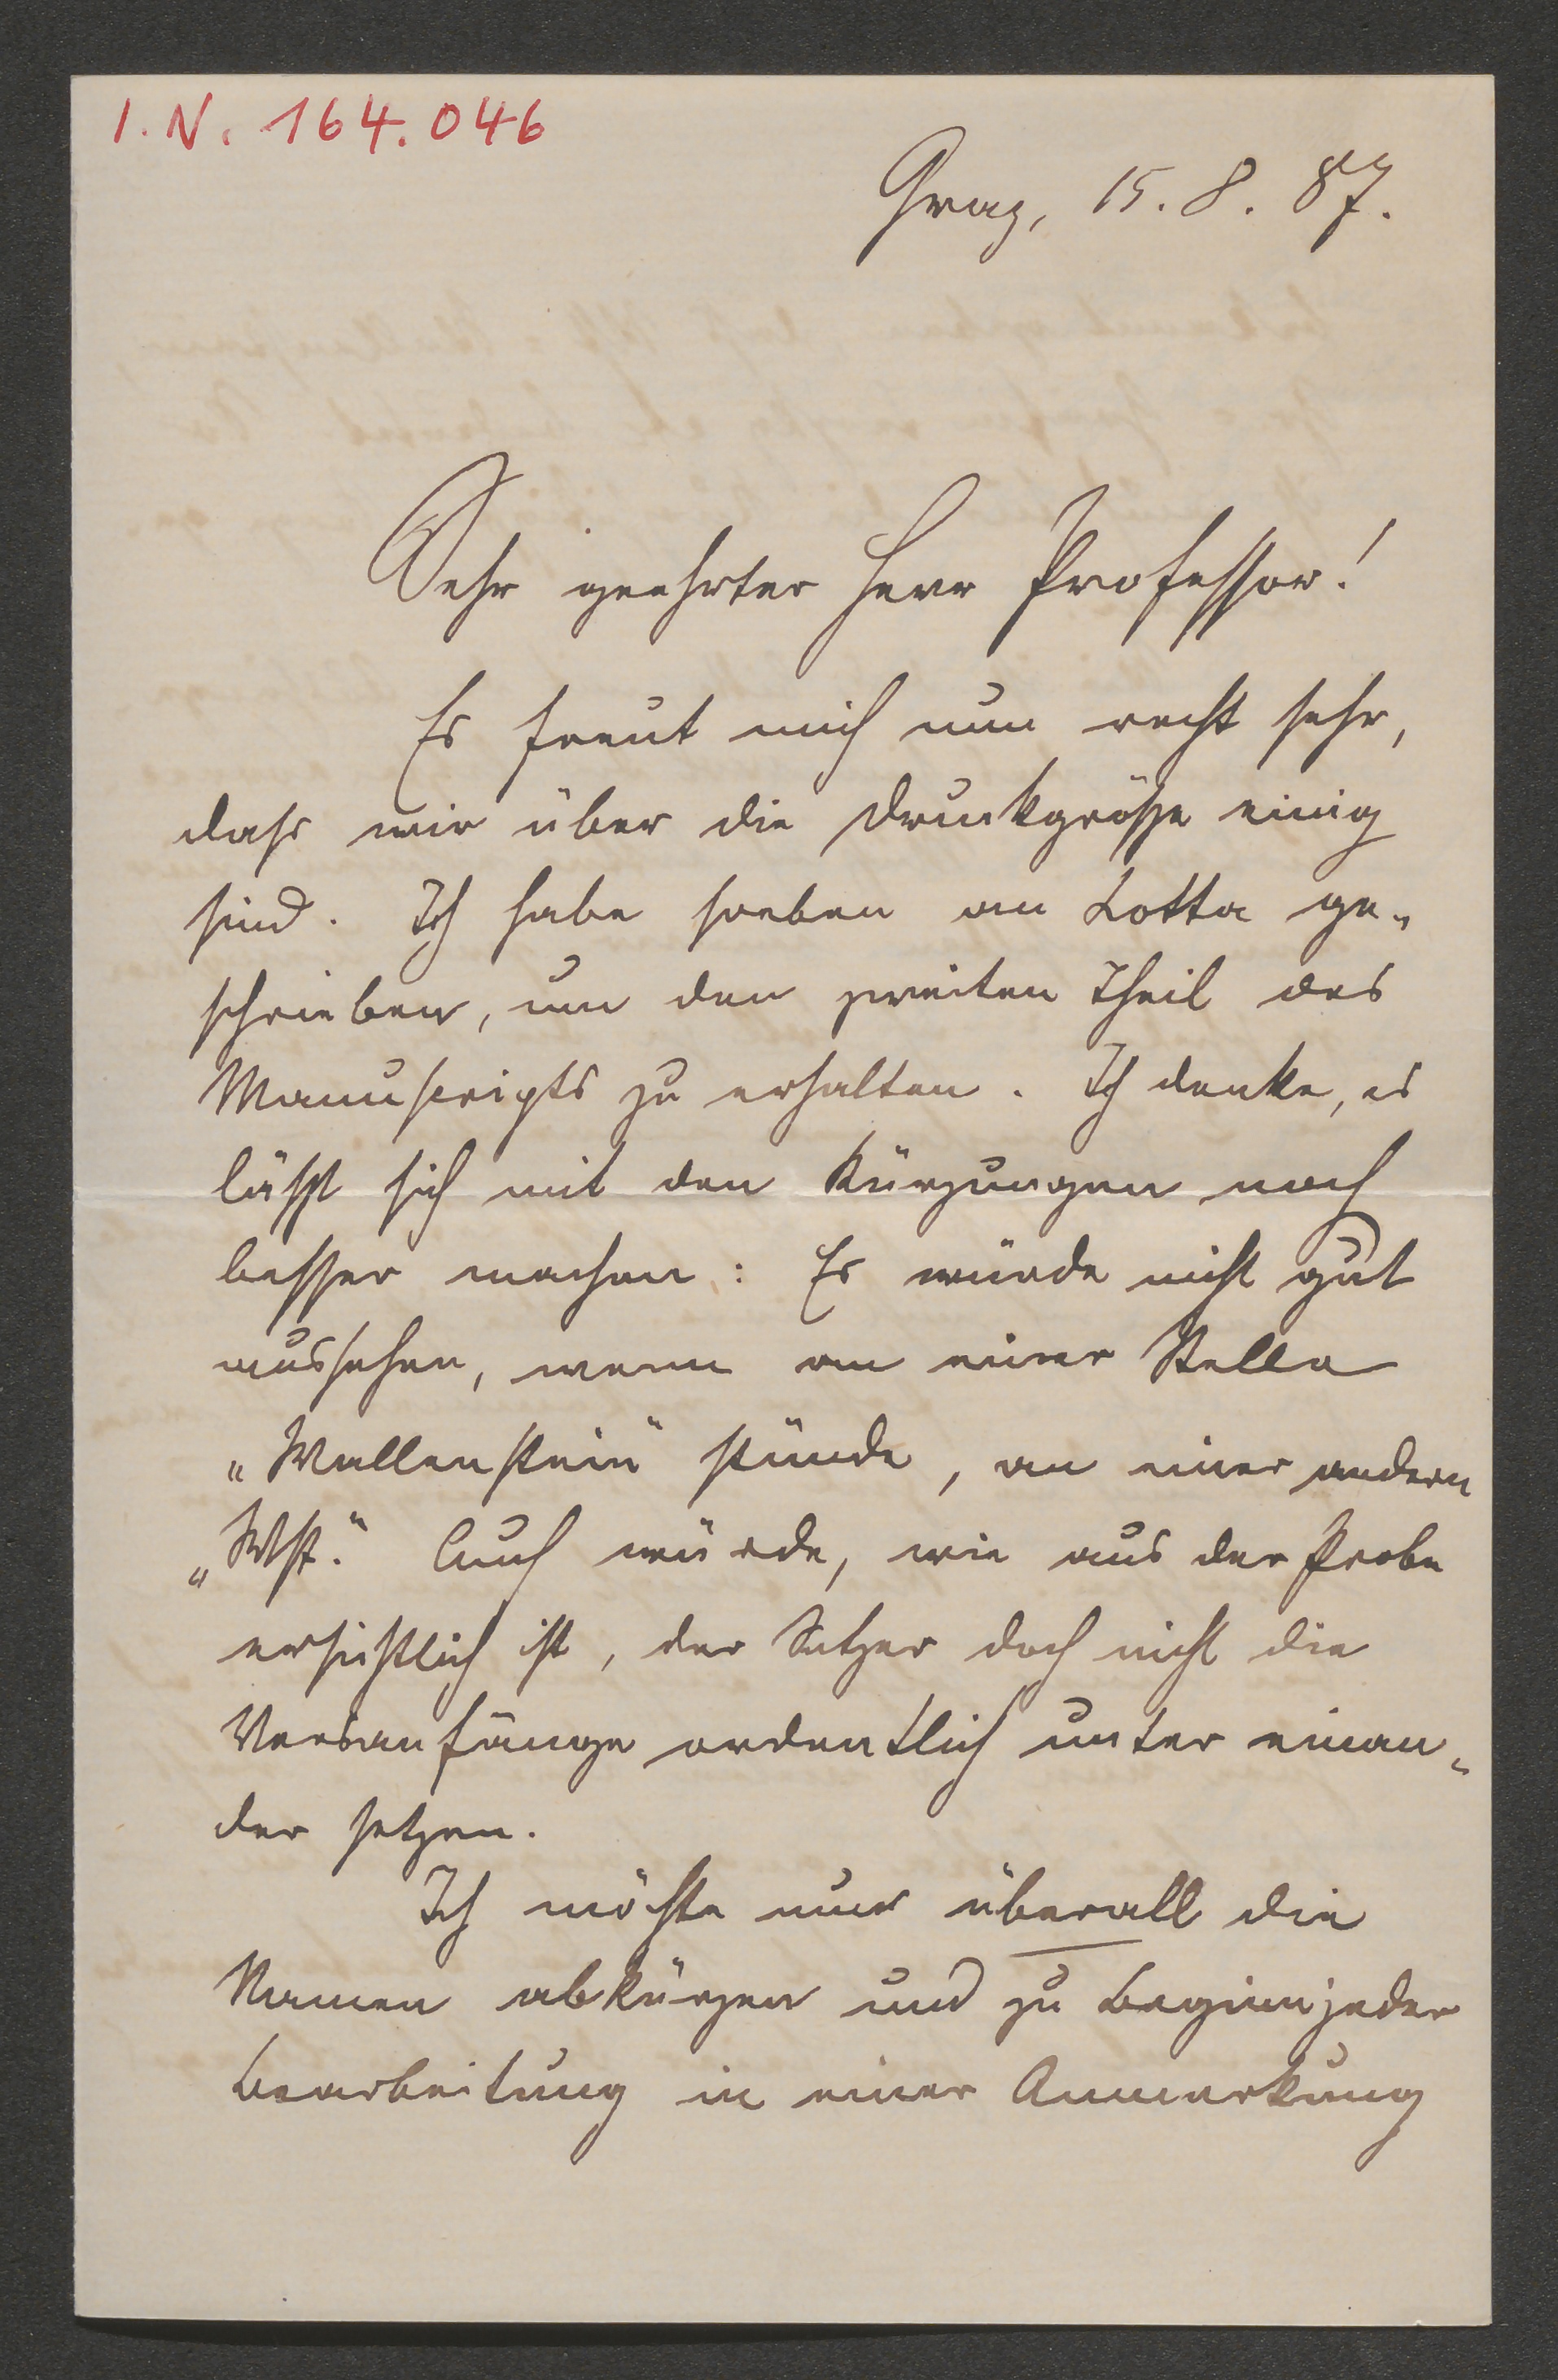 I. N. 164.046
Graz, 15. 8. 87.
Sehr geehrter Herr Professor!
Es freut mich nun recht sehr,
dass wir über die Druckgrösse einig
sind. Ich habe soeben an Cotta ge-
schrieben, um den zweiten Theil des
Manuscripts zu erhalten. Ich denke, es
lässt sich mit den Kürzungen noch
besser machen: Es würde nicht gut
aussehen, wenn an einer Stelle
„Wallenstein“ stünde, an einer andern
„Wst.“ Auch würde, wie aus der Probe
ersichtlich ist, der Setzer doch nicht die
Versanfänge ordentlich unter einan-
der setzen.
Ich möchte nun überall die
Namen abkürzen und zu Beginn jeder
Bearbeitung in einer Anmerkung